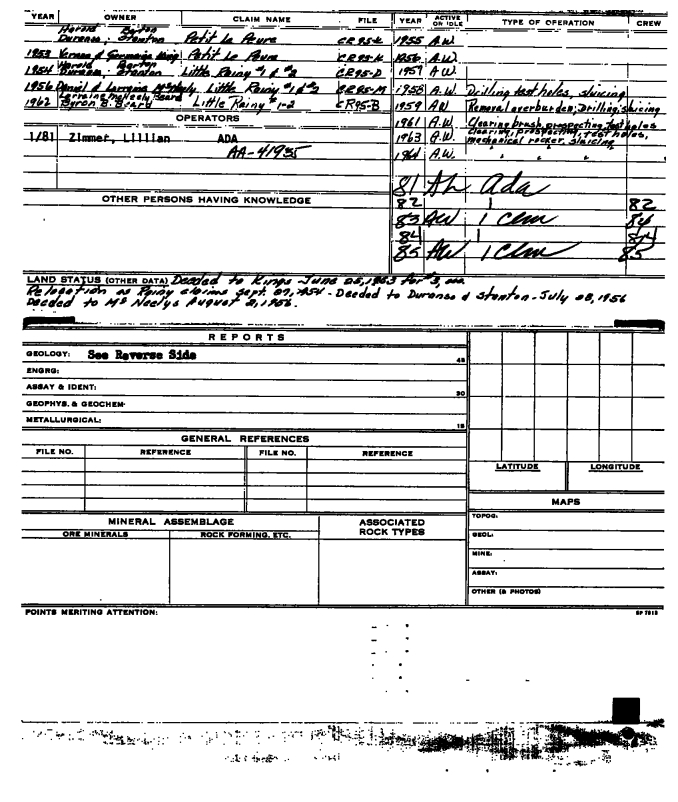 YEAR OWNER CLAIM NAME FILE YEAR ACTIVE OR IDLE TYPE OF OPERATION CREW
Harold Barton
Duranso; Stanton Petit La Peure CR95-K 1955 A.W.
1953 Vernon & King Petit La Peure CR95-K 1956 A.W.
Harold Barton
1954 Duranso, Stanton Little Rainy #1 & #2 CR95-D 1957 A.W.
1956 Daniel & Lorraine McNeely, Little Rainy #1 & #2 CR95-M 1958 A.W. Drilling test holes, sluicing
Lorraine McNeely Beard
1962 Byron B. Beard Little Rainy #1-2 CR95-B 1959 AW Removal overburden; Drilling, sluicing
OPERATORS
1961 A.W. Clearing brush, prospecting, test holes
1/81 Zimmer, Lillian ADA 1963 A.W. clearing, prospecting, test holes,
mechanical rocker, sluicing
AA-41935 1964 A.W. " " "
81 Ada
OTHER PERSONS HAVING KNOWLEDGE 82 | 82
83 AW 1 Clm 84
84 |
85 AW 1 Clm 85
LAND STATUS (OTHER DATA) Deeded to Kings - June 25, 1953 for #3,
Relocation as Rainy claims Sept. 27, 1954 - Deeded to Duranso & Stanton - July 28, 1956
Deeded to McNeelys August 2, 1956.
REPORTS
GEOLOGY: See Reverse Side 45
ENGRG:
ASSAY & IDENT: 30
GEOPHYS. & GEOCHEM:
METALLURGICAL: 15
GENERAL REFERENCES
FILE NO. REFERENCE FILE NO. REFERENCE
LATITUDE LONGITUDE
MAPS
TOPOG:
MINERAL ASSEMBLAGE ASSOCIATED ROCK TYPES
ORE MINERALS ROCK FORMING, ETC.
GEOL:
MINE:
ASSAY:
OTHER (& PHOTOS)
POINTS MERITING ATTENTION: